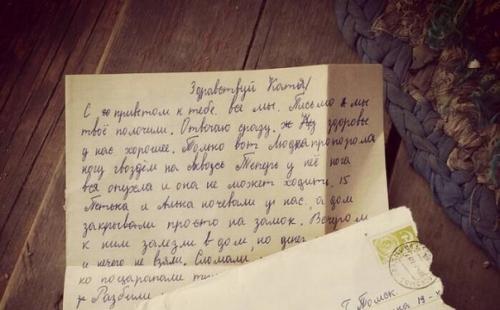 Здравствуй Катя!
С приветом к тебе все мы. Письмо мы
твоё получили. Отвечаю сразу. здоровье
у нас хорошее. Только вот Людка пропорола
ногу гвоздём на Теперь у неё нога
вся опухла и она не может ходить. 15
Петька и Алька ночевали у нас, а дом
закрывали просто на замок. Вечером
к ним залезли в дом но денег
и ничего не взяли. Сломали
ко поцарапали
Разбили
г. Томск